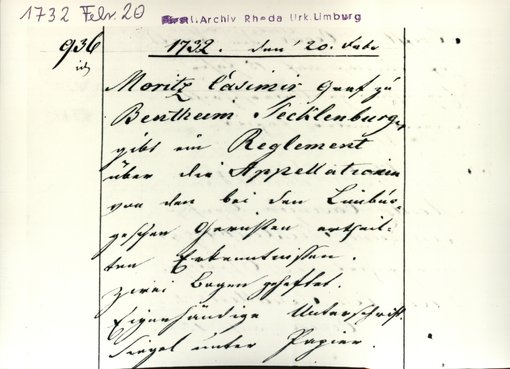 1732 Febr 20
Fürstl. Archiv Rheda Urk. Limburg
936
1732. den 20. Febr
Moritz Casimir Graf zu
Bentheim Tecklenburg
gibt ein Reglement
über die Appellationen
von den bei den Limbur-
gschen Gerichten ertheil-
ten Erkenntnissen.
zwei Bogen geheftet.
Eigenhändige Unterschrift.
Siegel unter Papier.